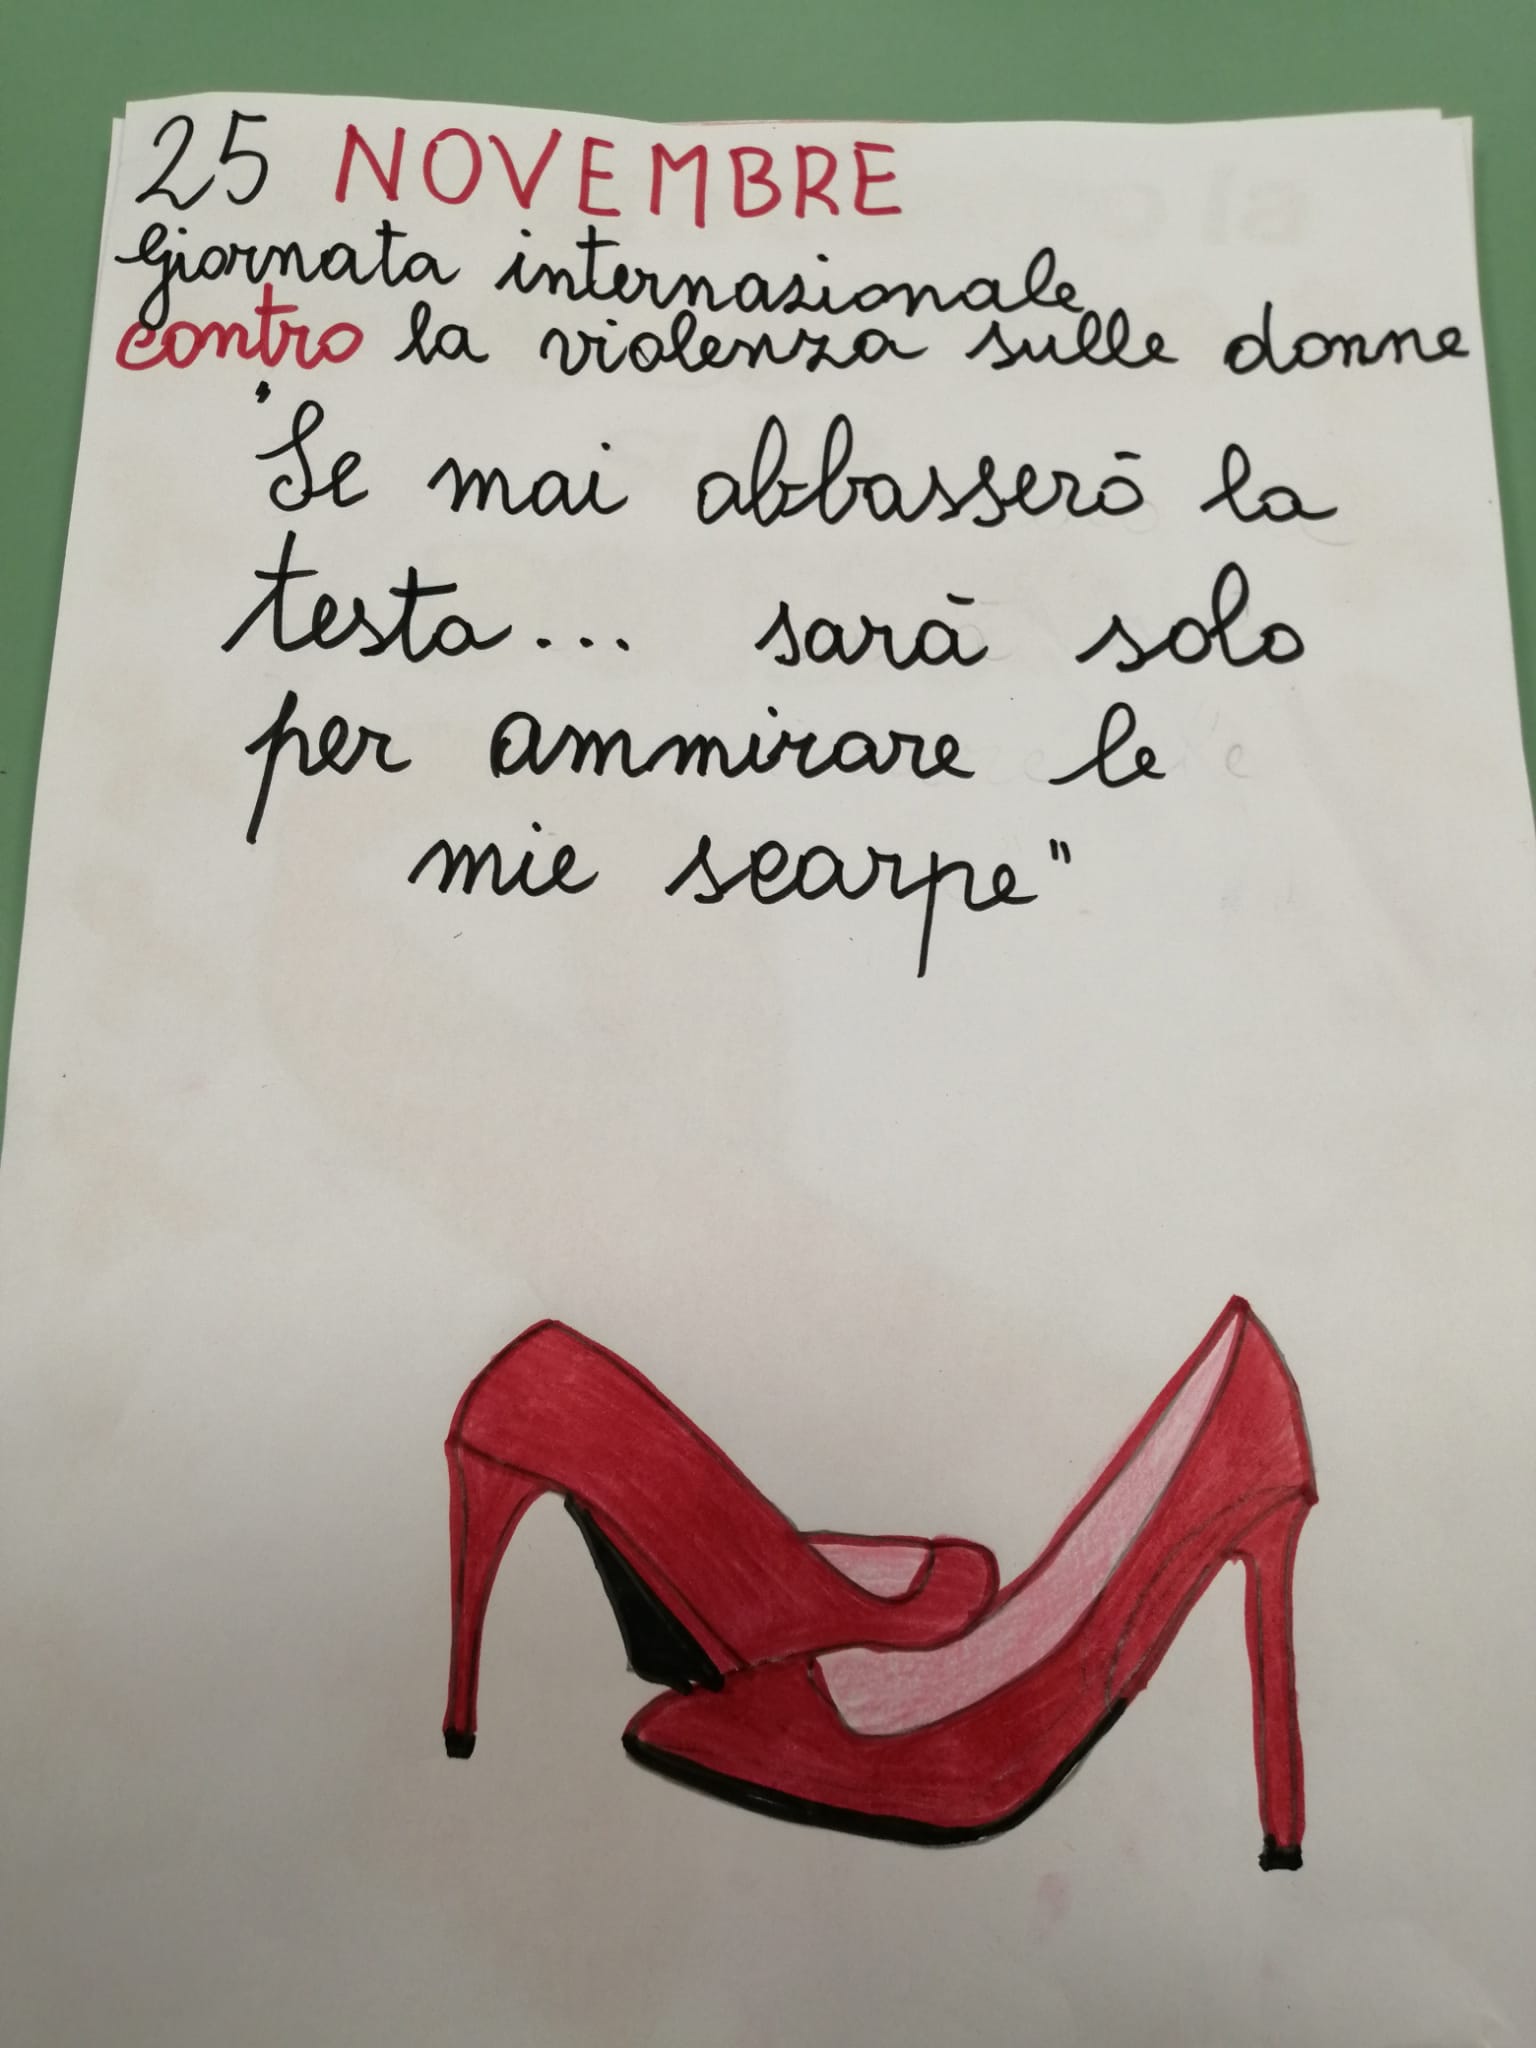 25 NOVEMBRE
Giornata internazionale
contro la violenza sulle donne
"Se mai abbasserò la
testa... sarà solo
per ammirare le
mie scarpe"